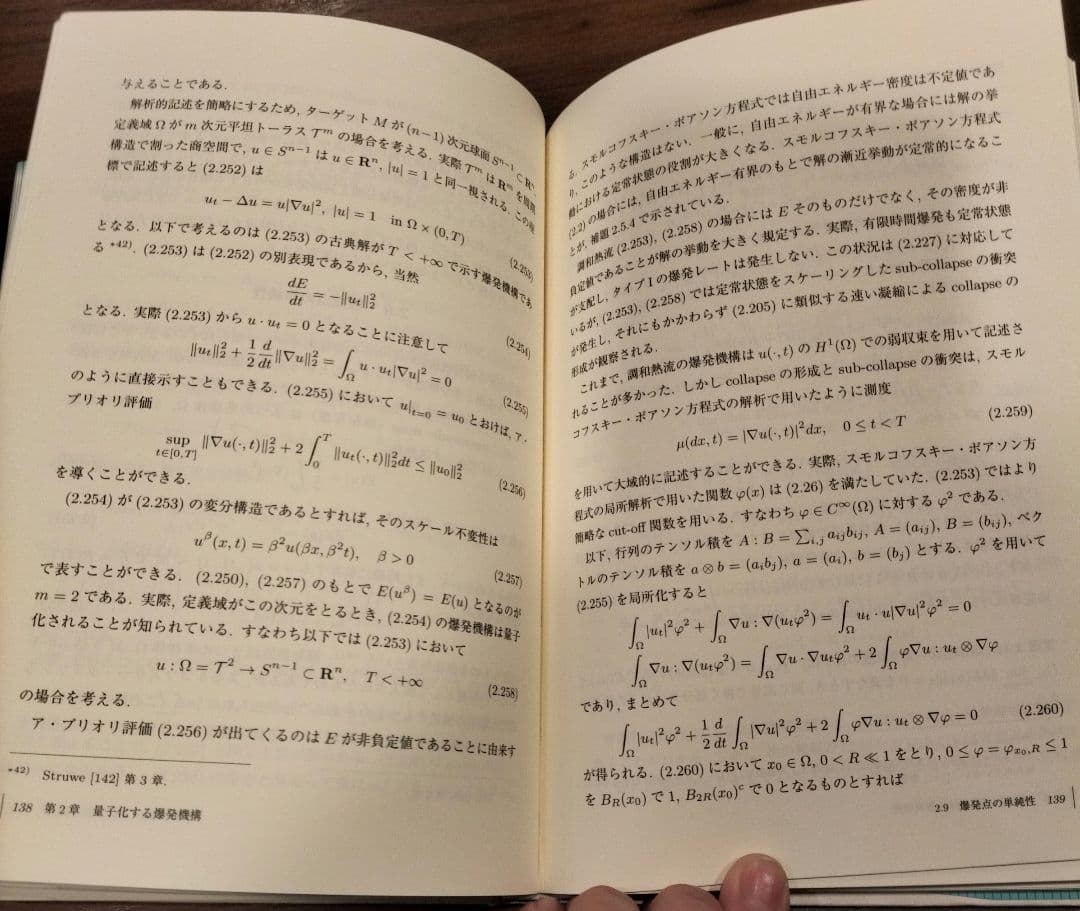 与えることである.
解析的記述を簡略にするため, ターゲット M が (n−1) 次元球面 S^{n−1} ⊂ R^n,
定義域 Ω が m 次元平坦トーラス T^m の場合を考える. 実際 T^m は R^m を周期
構造で割った商空間で, u ∈ S^{n−1} は u ∈ R^n, |u| = 1 と同一視される. この座
標で記述すると (2.252) は
u_t − Δu = u|∇u|^2, |u| = 1 in Ω × (0, T) (2.253)
となる. 以下で考えるのは (2.253) の古典解が T < +∞ で示す爆発機構であ
る *42). (2.253) は (2.252) の別表現であるから, 当然
dE/dt = −‖u_t‖_2^2 (2.254)
となる. 実際 (2.253) から u · u_t = 0 となることに注意して
‖u_t‖_2^2 + 1/2 d/dt ‖∇u‖_2^2 = ∫_Ω u · u_t|∇u|^2 = 0 (2.255)
のように直接示すこともできる. (2.255) において u|_{t=0} = u_0 とおけば, ア・
プリオリ評価
sup_{t∈[0,T]} ‖∇u(·, t)‖_2^2 + 2 ∫_0^T ‖u_t(·, t)‖_2^2 dt ≤ ‖u_0‖_2^2 (2.256)
を導くことができる.
(2.254) が (2.253) の変分構造であるとすれば, そのスケール不変性は
u^β(x, t) = β^2 u(βx, β^2 t), β > 0 (2.257)
で表すことができる. (2.250), (2.257) のもとで E(u^β) = E(u) となるのが
m = 2 である. 実際, 定義域がこの次元をとるとき, (2.254) の爆発機構は量子
化されることが知られている. すなわち以下では (2.253) において
u : Ω = T^2 → S^{n−1} ⊂ R^n, T < +∞ (2.258)
の場合を考える.
ア・プリオリ評価 (2.256) が出てくるのは E が非負定値であることに由来す
*42) Struwe [142] 第 3 章.
138 第 2 章 量子化する爆発機構
る. スモルコフスキー・ポアソン方程式では自由エネルギー密度は不定値であ
り, このような構造はない. 一般に, 自由エネルギーが有界な場合には解の挙
動における定常状態の役割が大きくなる. スモルコフスキー・ポアソン方程式
(2.2) の場合には, 自由エネルギー有界のもとで解の漸近挙動が定常的になるこ
とが, 補題 2.5.4 で示されている.
調和熱流 (2.253), (2.258) の場合には E そのものだけでなく, その密度が非
負定値であることが解の挙動を大きく規定する. 実際, 有限時間爆発も定常状態
が支配し, タイプ I の爆発レートは発生しない. この状況は (2.227) に対応して
いるが, (2.253), (2.258) では定常状態をスケーリングした sub-collapse の衝突
が発生し, それにもかかわらず (2.205) に類似する速い凝縮による collapse の
形成が観察される.
これまで, 調和熱流の爆発機構は u(·, t) の H^1(Ω) での弱収束を用いて記述さ
れることが多かった. しかし collapse の形成と sub-collapse の衝突は, スモル
コフスキー・ポアソン方程式の解析で用いたように測度
μ(dx, t) = |∇u(·, t)|^2 dx, 0 ≤ t < T (2.259)
を用いて大域的に記述することができる. 実際, スモルコフスキー・ポアソン方
程式の局所解析で用いた関数 φ(x) は (2.26) を満たしていた. (2.253) ではより
簡略な cut-off 関数を用いる. すなわち φ ∈ C^∞(Ω) に対する φ^2 である.
以下, 行列のテンソル積を A : B = Σ_{i,j} a_{ij}b_{ij}, A = (a_{ij}), B = (b_{ij}), ベク
トルのテンソル積を a ⊗ b = (a_i b_j), a = (a_i), b = (b_j) とする. φ^2 を用いて
(2.255) を局所化すると
∫_Ω |u_t|^2 φ^2 + ∫_Ω ∇u : ∇(u_t φ^2) = ∫_Ω u_t · u|∇u|^2 φ^2 = 0
∫_Ω ∇u : ∇(u_t φ^2) = ∫_Ω ∇u · ∇u_t φ^2 + 2 ∫_Ω φ∇u : u_t ⊗ ∇φ
であり, まとめて
∫_Ω |u_t|^2 φ^2 + 1/2 d/dt ∫_Ω |∇u|^2 φ^2 + 2 ∫_Ω φ∇u : u_t ⊗ ∇φ = 0 (2.260)
が得られる. (2.260) において x_0 ∈ Ω, 0 < R ≪ 1 をとり, 0 ≤ φ = φ_{x_0,R} ≤ 1
を B_R(x_0) で 1, B_{2R}(x_0)^c で 0 となるものとすれば
2.9 爆発点の単純性 139